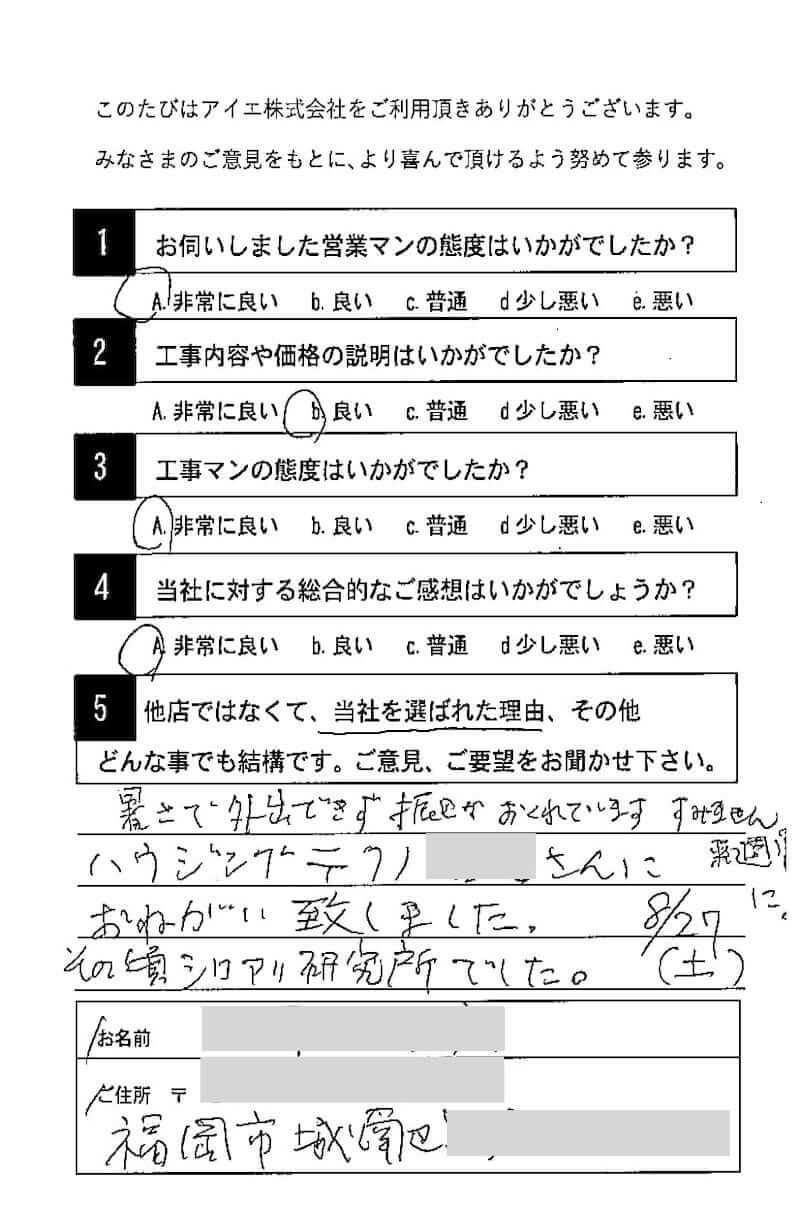 このたびはアイエ株式会社をご利用頂きありがとうございます。
みなさまのご意見をもとに、より喜んで頂けるよう努めて参ります。
1 お伺いしました営業マンの態度はいかがでしたか？
A. 非常に良い b. 良い c. 普通 d 少し悪い e. 悪い
2 工事内容や価格の説明はいかがでしたか？
A. 非常に良い b. 良い c. 普通 d 少し悪い e. 悪い
3 工事マンの態度はいかがでしたか？
A. 非常に良い b. 良い c. 普通 d 少し悪い e. 悪い
4 当社に対する総合的なご感想はいかがでしょうか？
A. 非常に良い b. 良い c. 普通 d 少し悪い e. 悪い
5 他店ではなくて、当社を選ばれた理由、その他
どんな事でも結構です。ご意見、ご要望をお聞かせ下さい。
暑さで外出できず 振込が おくれています すみません
ハウジングテクノ さんに 来週
に。
おねがい 致しました。 8/27
その頃シロアリ研究所でした。 (土)
お名前
ご住所 〒
福岡市城南区